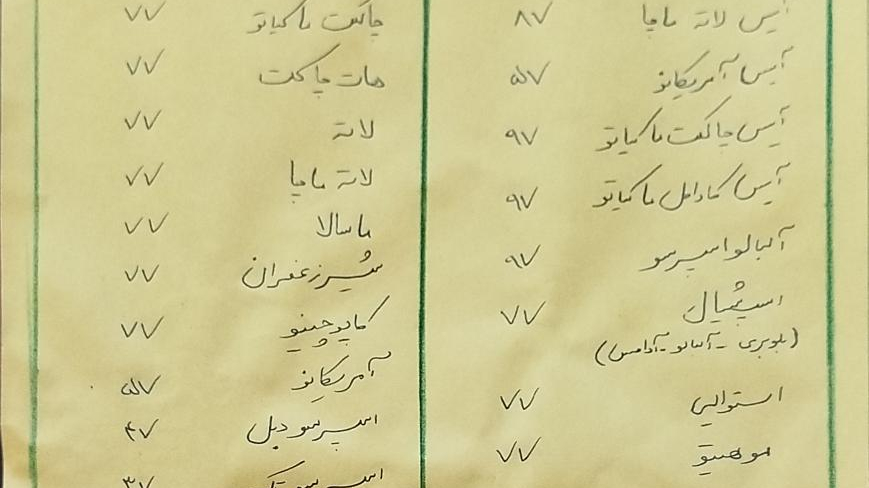 آیس لاته ماچا ۸۷
آیس آمریکانو ۵۷
آیس چاکلت ماکیاتو ۹۷
آیس کارامل ماکیاتو ۹۷
آلبالو اسپرسو ۹۷
اسپشیال ۷۷
(بلوبری - آلبالو - آدامس)
استوایی ۷۷
موهیتو ۷۷
چاکلت ماکیاتو ۷۷
هات چاکلت ۷۷
لاته ۷۷
لاته ماچا ۷۷
ماسالا ۷۷
شیر زعفران ۷۷
کاپوچینو ۷۷
آمریکانو ۵۷
اسپرسو دبل ۴۷
اسپرسو تک ۳۷